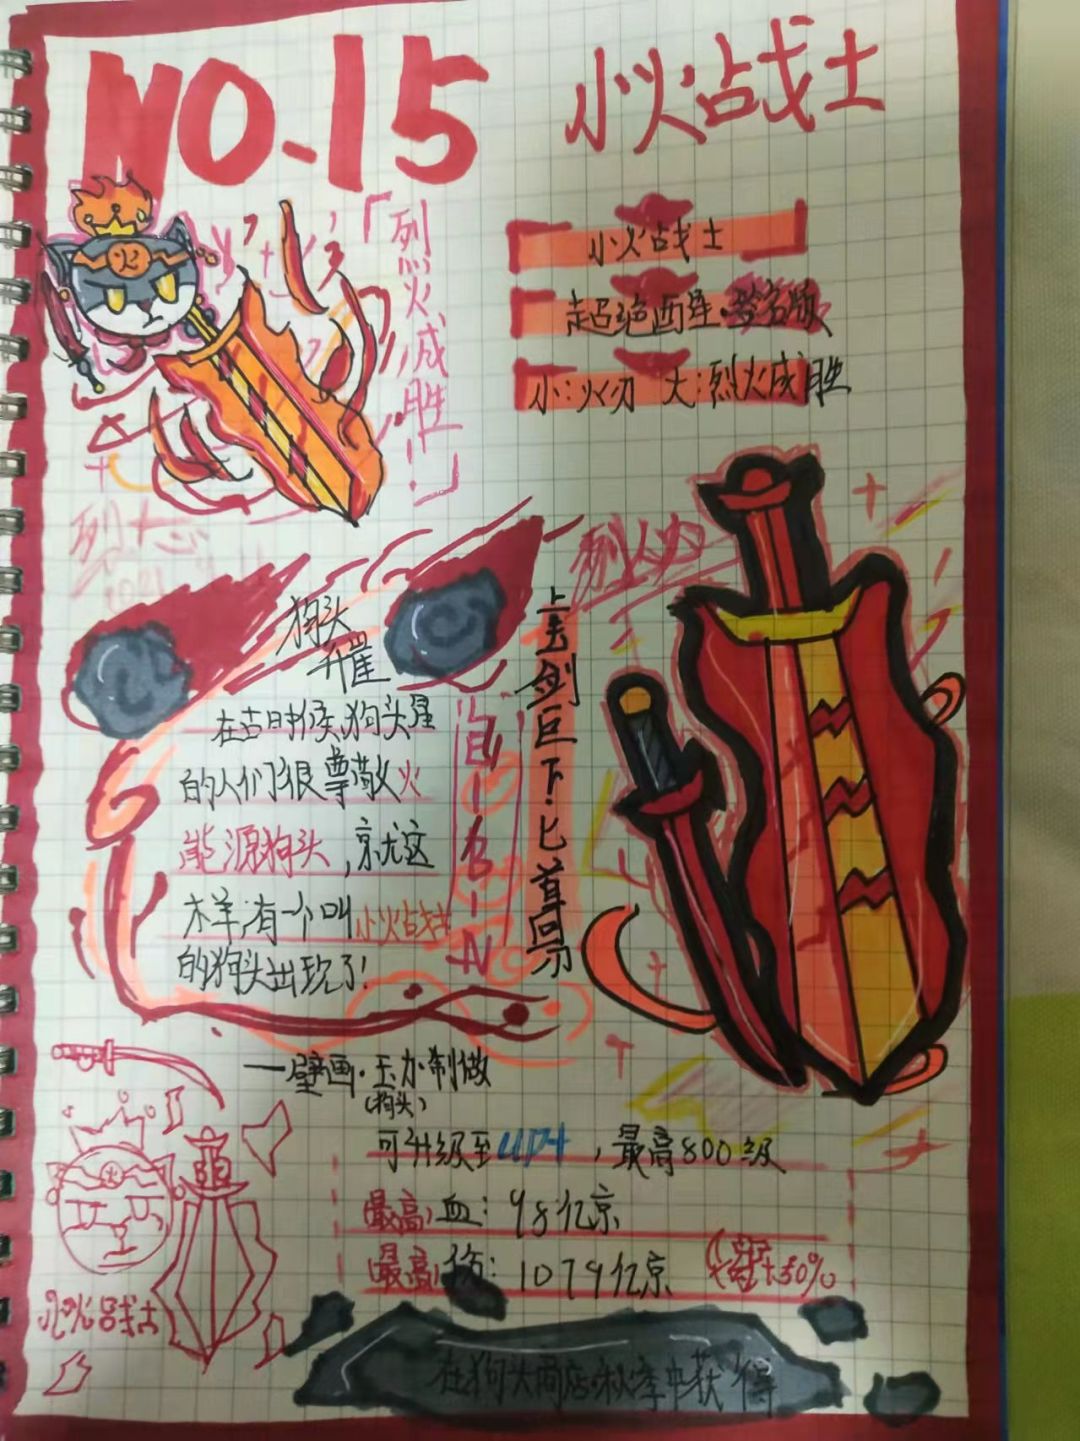 NO.15
小火战士
火
「烈火成胜!」
小火战士
超绝画星·签名版
小:火刃 大:烈火成胜
狗头
在古时候,狗头星
的人们很尊敬火
能源狗头,就这
样,有一个叫小火战士
的狗头出现了!
上古剑巨下·匕首
——壁画·玉力·制做
(狗头)
可升级至UP4,最高800级
最高血:98亿京
最高伤:1079亿京
+50%
小火战士
在狗头商店·秋季中获得